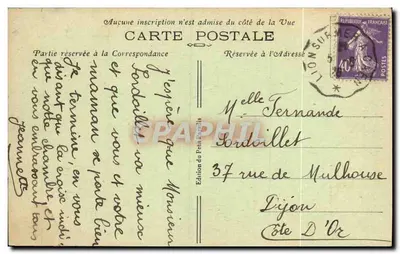 Aucune inscription n'est admise du côté de la Vue
CARTE POSTALE
Partie réservée à la Correspondance
Réservée à l'Adresse
LION SUR MER
RÉPUBLIQUE FRANÇAISE
40c
POSTES
J'espère que Monsieur
va mieux
et que vous et votre
maman se porte bien
Je termine, en vous
disant que la croix indi
que notre chambre et
en vous embrassant tous
Jeannette
Edition du Petit
Melle Fernande
37 rue de Mulhouse
Dijon
Côte D'Or
CPArama